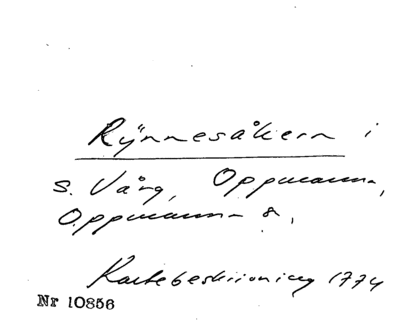 Rÿnnesåkern i
S. Vång, Oppmanna,
Oppmanna 8,
Kartebeskrivning 1774
Nr 10856